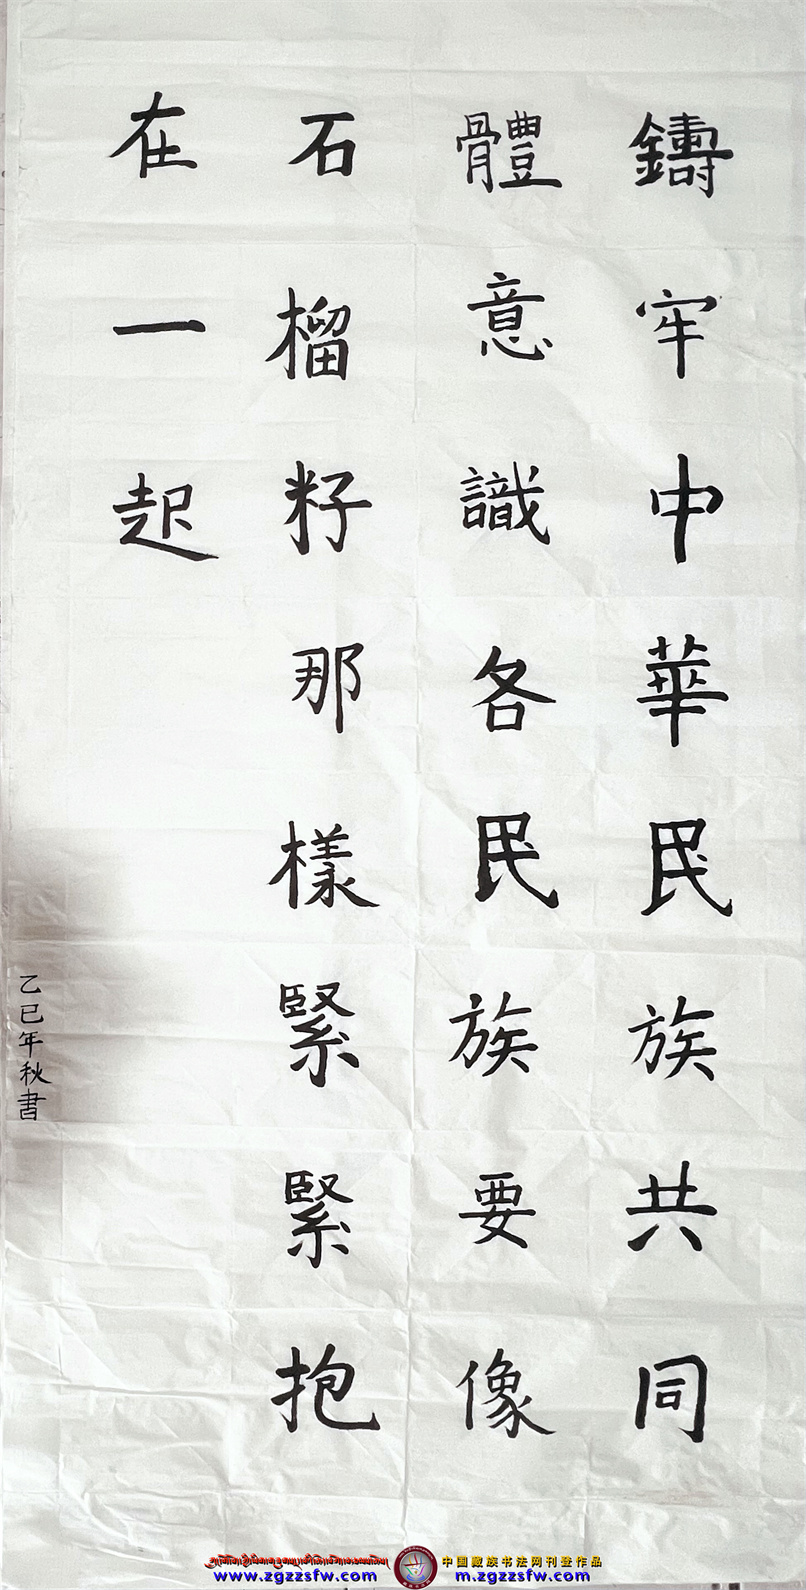 鑄牢中華民族共同
體意識各民族要像
石榴籽那樣緊緊抱
在一起
乙巳年秋書
中国藏族书法网刊登作品
www.zgzzsfw.com
m.zgzzsfw.com